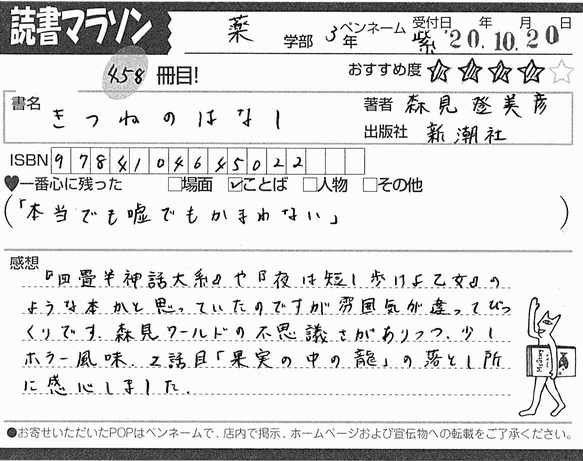 読書マラソン
薬 学部 3年 ペンネーム 紫 受付日 年 月 日 '20.10.20
458 冊目! おすすめ度 ★★★★☆
書名 きつねのはなし
著者 森見登美彦
出版社 新潮社
ISBN 9784104645022
♥一番心に残った □場面 ☑ことば □人物 □その他
(「本当でも嘘でもかまわない」)
感想
『四畳半神話大系』や『夜は短し歩けよ乙女』の
ような本かと思っていたのですが雰囲気が違ってびっ
くりです。森見ワールドの不思議さがありつつ、少し
ホラー風味。2話目「果実の中の龍」の落とし所
に感心しました。
●お寄せいただいたPOPはペンネームで、店内で掲示、ホームページおよび宣伝物への転載をご了承ください。